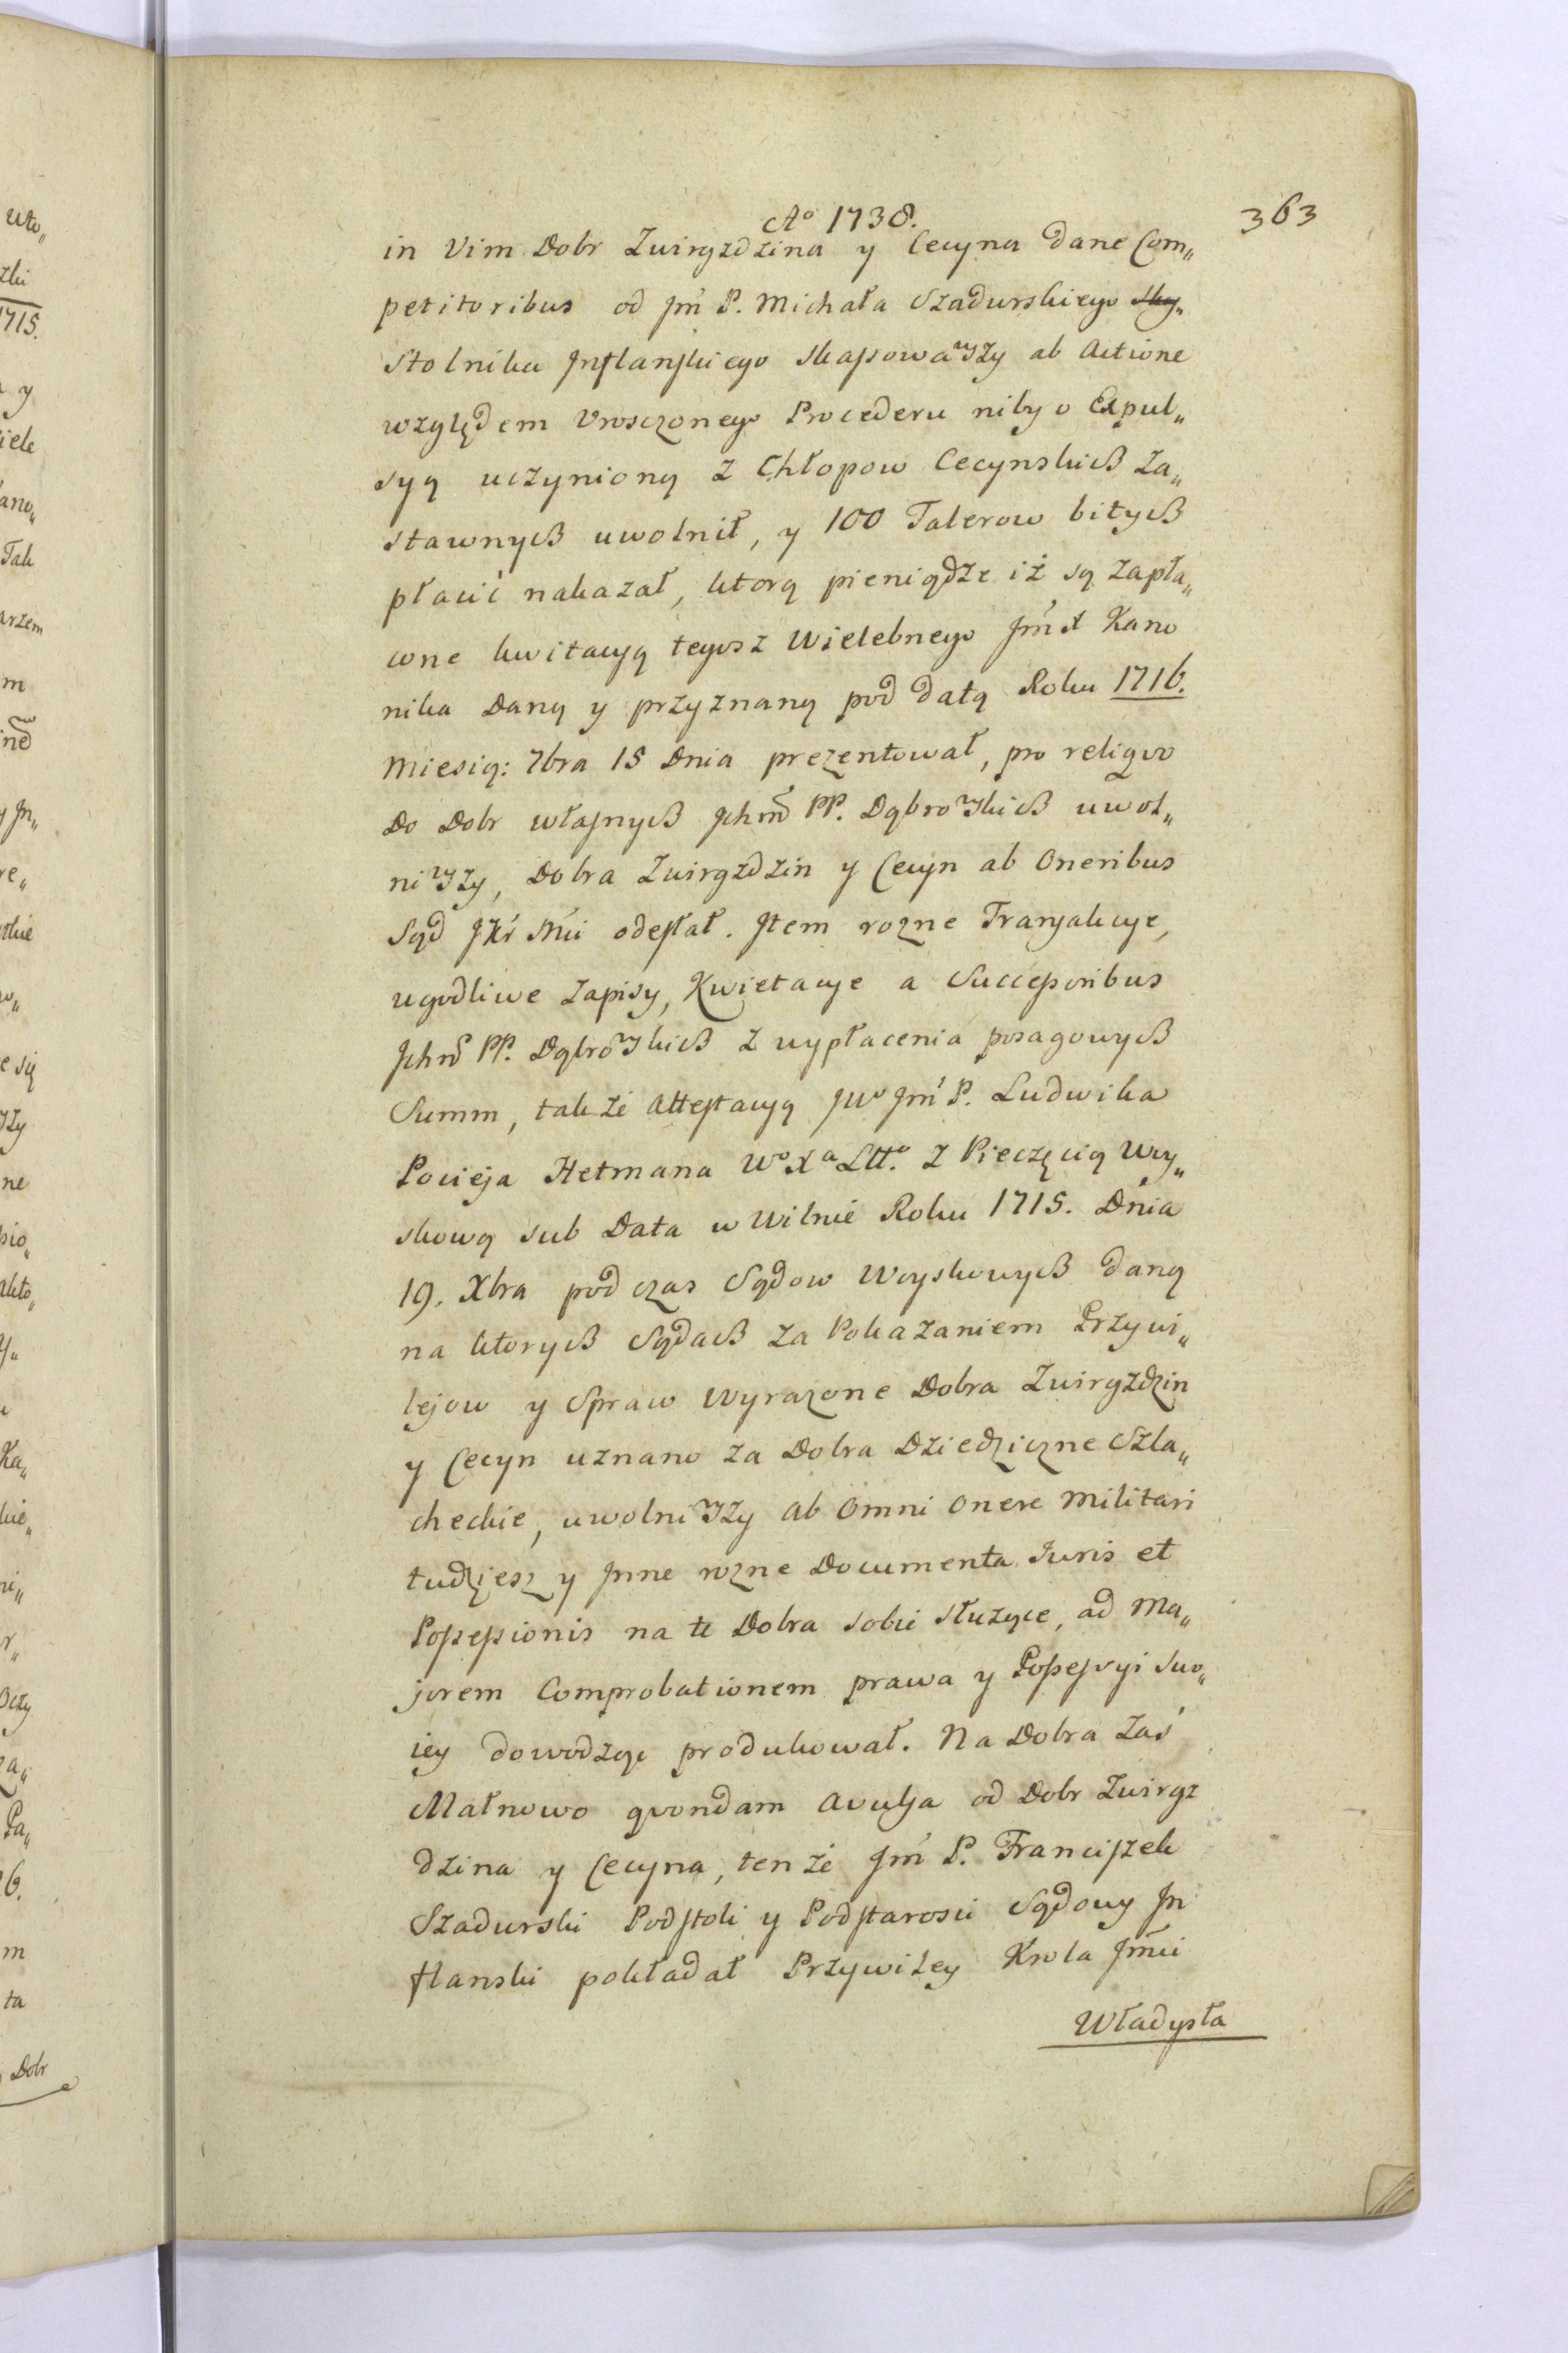 Aº 1738.
363
in Vim Dobr Zwirgzdzina y Cecyna dane Com„
petitoribus od Jm P. Michała Szadurskiego
Stolnika Inflanskiego skasowawszy ab Actione
względem Vrosczonego Procederu niby o Expul„
syą uczynioną z Chłopow Cecynskich Za„
stawnych uwolnił, y 100 Talerow bitych
płacić nakazał, ktorą pieniądze iż są zapła„
cone kwitacyą tegosz Wielebnego Jm X Kano
nika Daną y przyznaną pod datą Roku 1716.
Miesią: 7bra 15 Dnia prezentował, pro reliquo
Do Dobr własnych Ichm PP. Dąbrowskich uwol„
niwszy, Dobra Zwirgzdzin y Cecyn ab Oneribus
Sąd JKr Mci odesłał. Item rozne Transakcye,
ugodliwe Zapisy, Kwietacye a Successoribus
Ichm PP. Dąbrowskich z wypłacenia posagowych
Summ, takze Attestacyą JWo Jm P. Ludwika
Pocieja Hetmana Wº Xª Littº. z Pieczęcią Woy„
skową sub Data w Wilnie Roku 1715. Dnia
19. Xbra pod czas Sądow Woyskowych daną
na ktorych Sądach za Pokazaniem Przywi„
lejow y Spraw Wyrazone Dobra Zwirgzdzin
y Cecyn uznano za Dobra Dziedziczne Szla„
checkie, uwolniwszy ab Omni Onere Militari
tudziesz y Inne rozne Documenta Iuris et
Possessionis na te Dobra sobie służące, ad Ma„
jorem Comprobationem prawa y Possessyi swo„
iey dowodząc produkował. Na Dobra Zaś
Małnowo quondam Avulsa od Dobr Zwirgz
dzina y Cecyna, ten że Jm P. Franciszek
Szadurski Podstoli y Podstarosci Sądowy In
flanski pokładał Przywiley Krola Jmci
Władysła